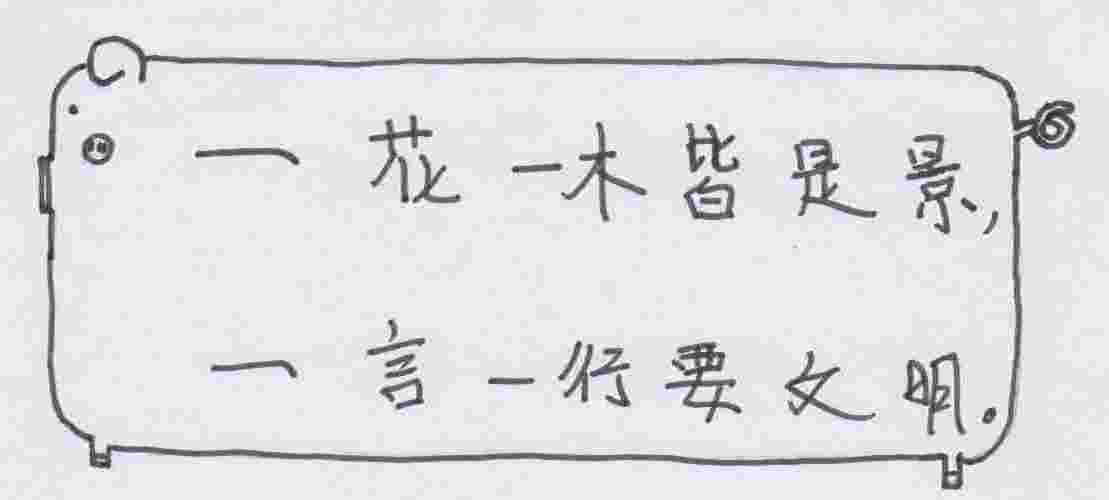 一花一木皆是景,
一言一行要文明.